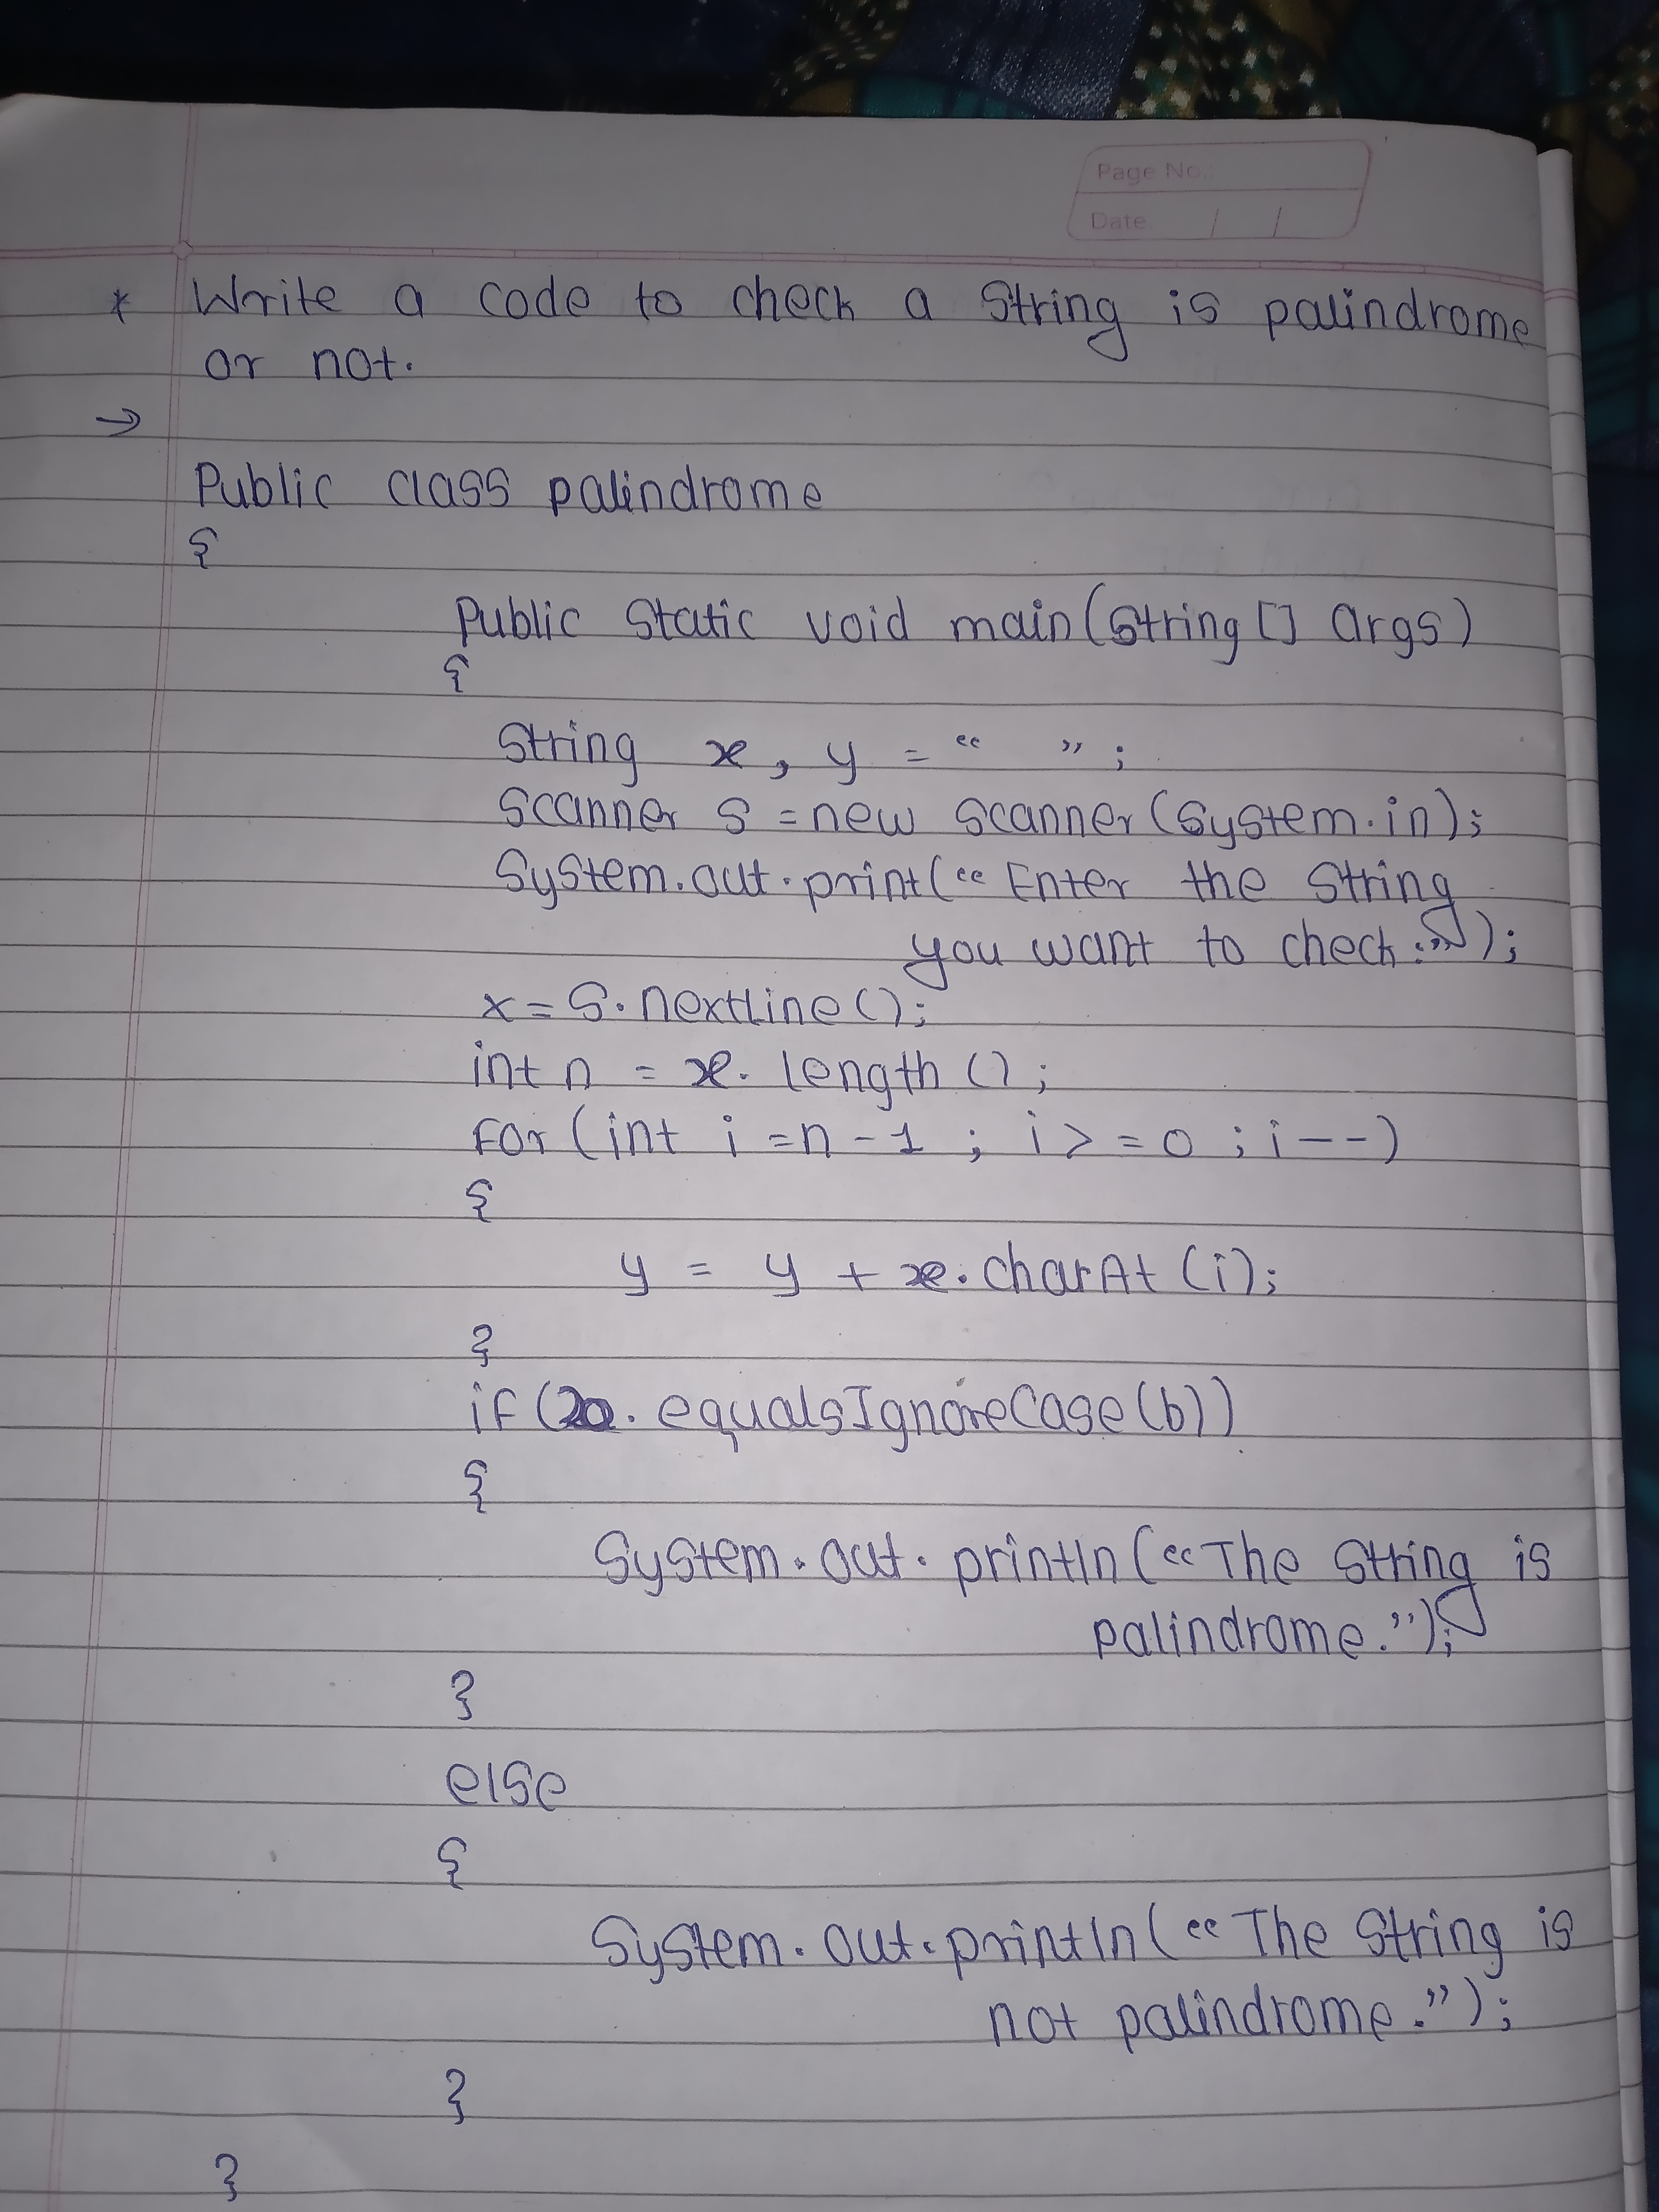 Page No.:
Date / /
* Write a code to check a string is palindrome
or not.
→
Public class palindrome
{
Public static void main(string [] args)
{
string x, y = “ ”;
scanner s = new scanner(system.in);
System.out.print(“Enter the string
you want to check:”);
x = s.nextline();
int n = x.length();
for (int i = n - 1 ; i >= 0 ; i--)
{
y = y + x.charAt(i);
}
if (a.equalsIgnoreCase(b))
{
System.out.println(“The string is
palindrome.”);
}
else
{
System.out.println(“The string is
not palindrome.”);
}
}